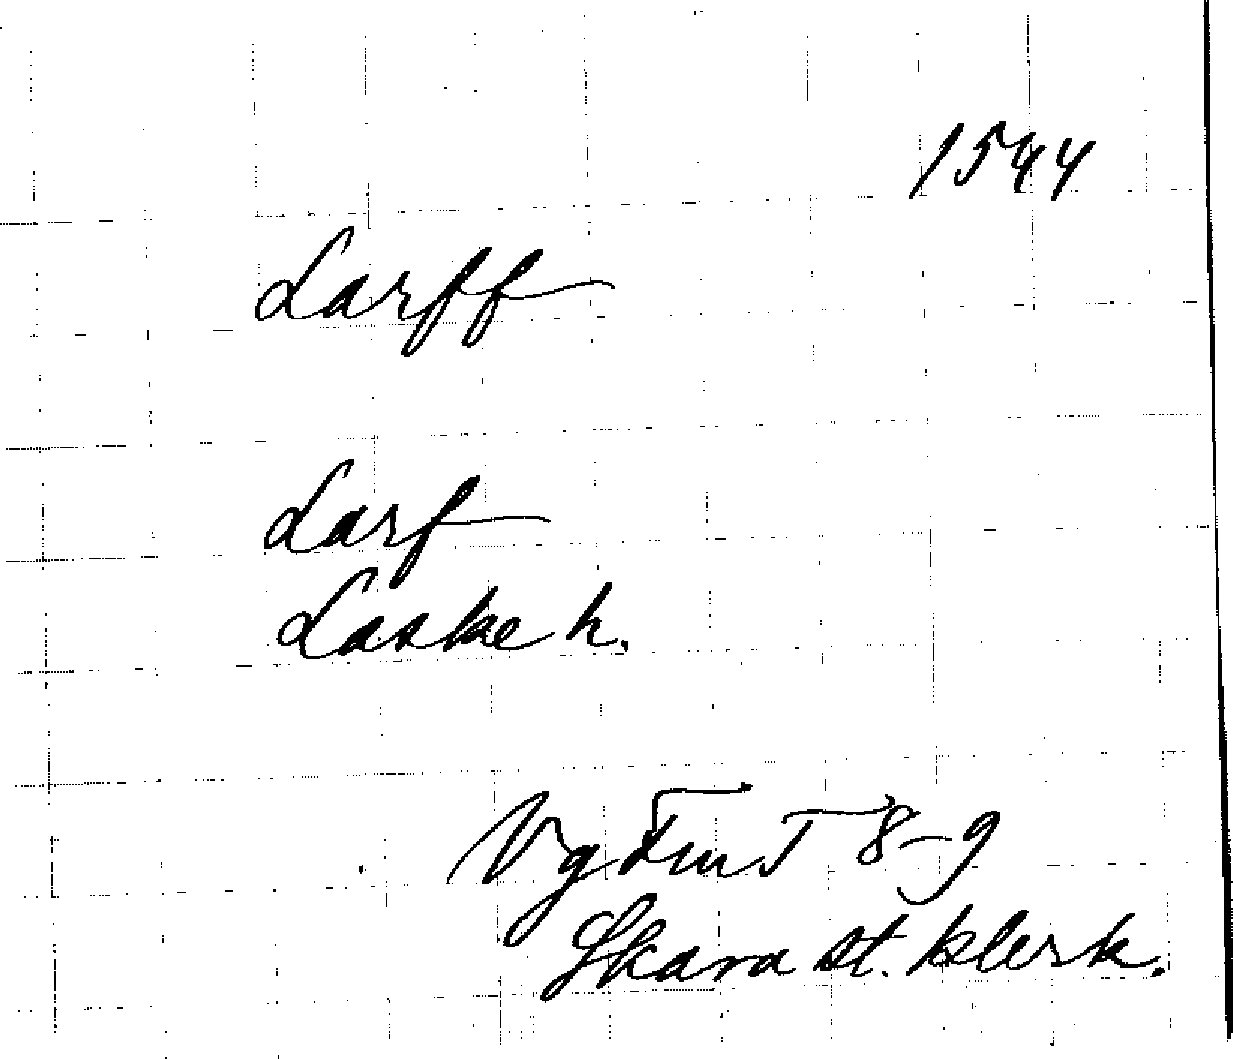 1544
Larff
Larf
Laske h.
Vg Fornt 8-9
Skara st. klerk.